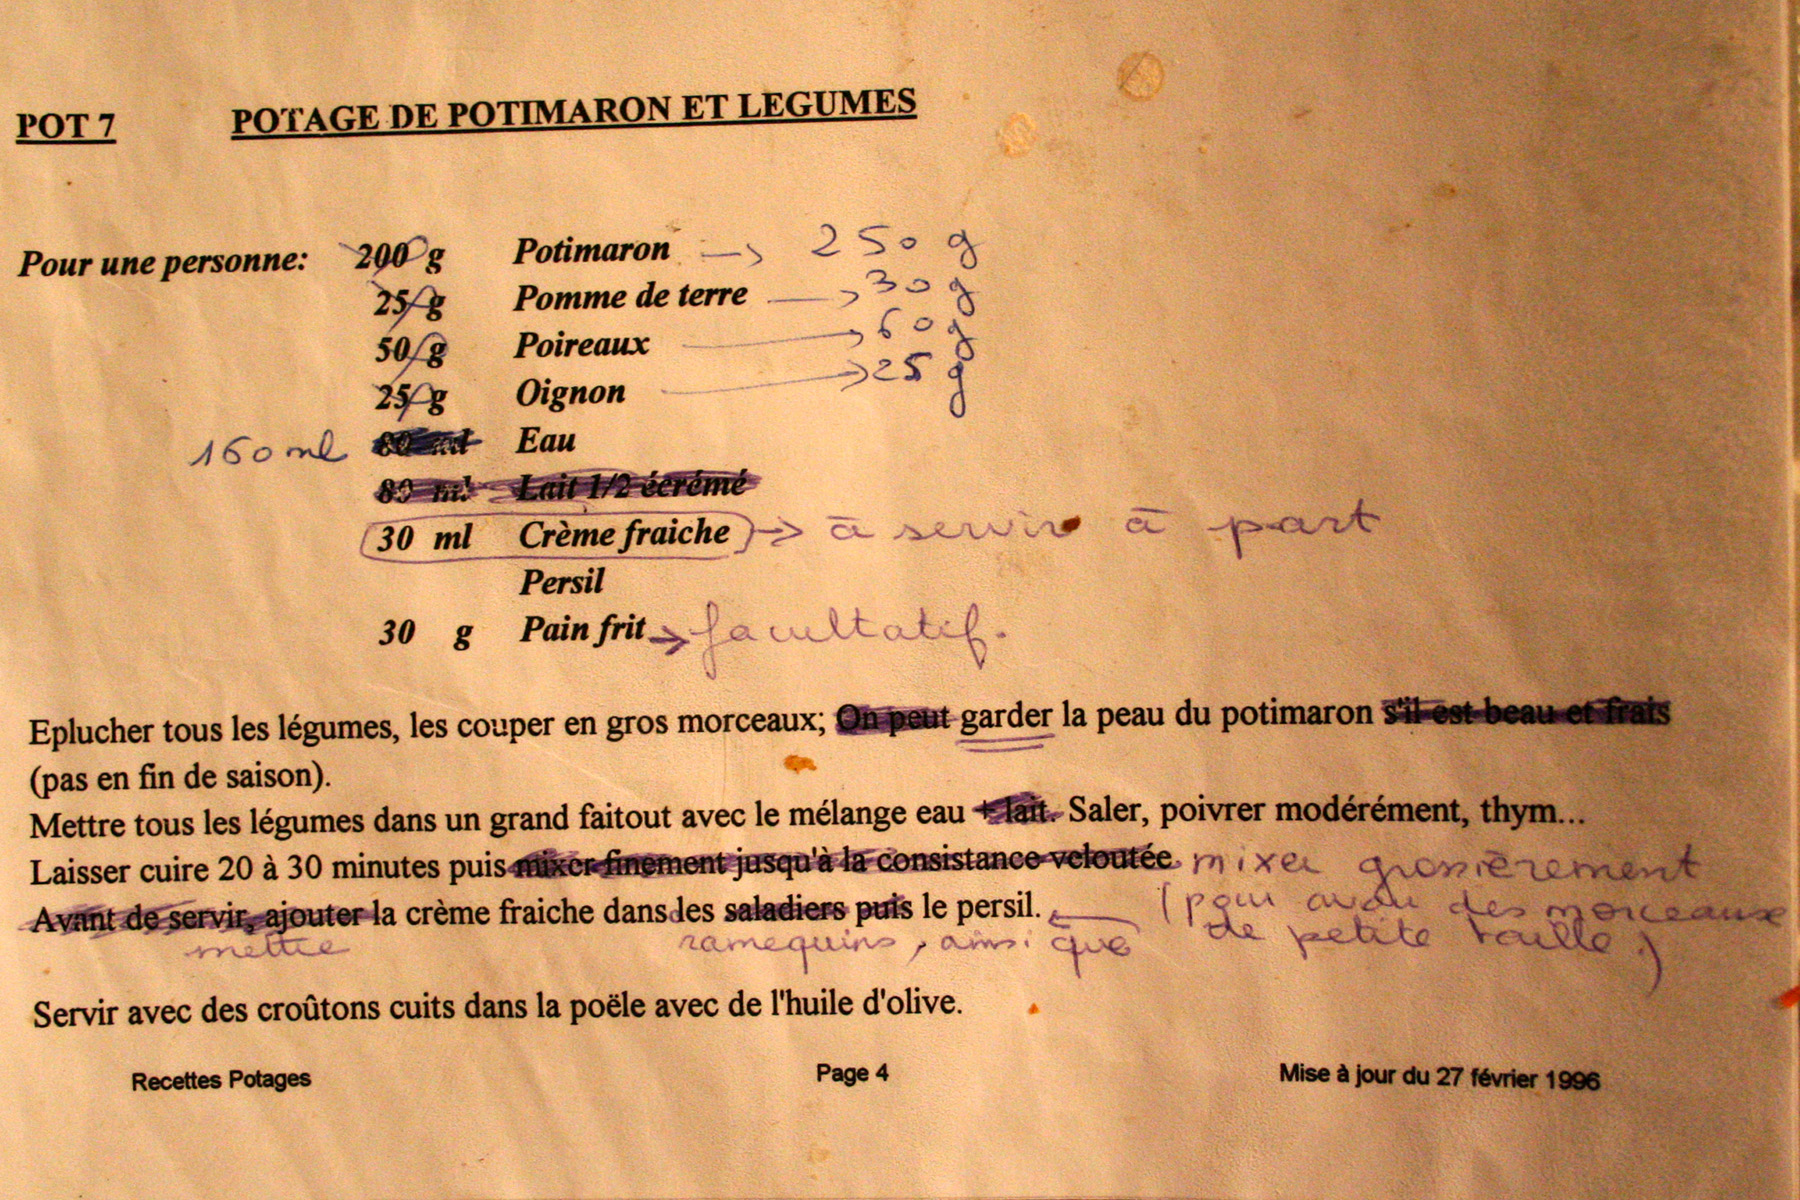 POT 7 POTAGE DE POTIMARON ET LEGUMES
Pour une personne: 200 g Potimaron -> 250 g
25 g Pomme de terre -> 30 g
50 g Poireaux -> 60 g
25 g Oignon -> 25 g
160 ml 80 ml Eau
80 ml Lait 1/2 écrémé
30 ml Crème fraiche -> à servir à part
Persil
30 g Pain frit -> facultatif.
Eplucher tous les légumes, les couper en gros morceaux; On peut garder la peau du potimaron s'il est beau et frais
(pas en fin de saison).
Mettre tous les légumes dans un grand faitout avec le mélange eau + lait. Saler, poivrer modérément, thym...
Laisser cuire 20 à 30 minutes puis mixer finement jusqu'à la consistance veloutée. mixer grossièrement
Avant de servir, ajouter la crème fraiche dans les saladiers puis le persil. (pour avoir des morceaux
mettre ramequins, ainsi que de petite taille)
Servir avec des croûtons cuits dans la poële avec de l'huile d'olive.
Recettes Potages Page 4 Mise à jour du 27 février 1996